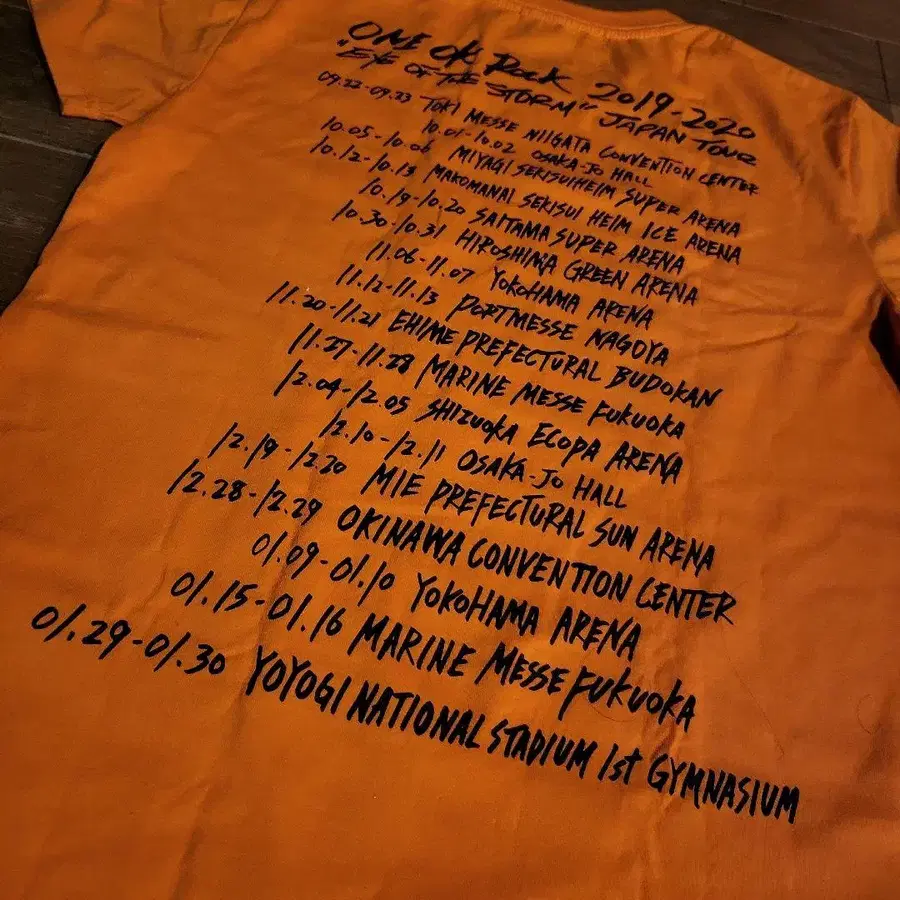 ONE OK ROCK 2019-2020
"EYE OF THE STORM" JAPAN TOUR
09.22-09.23 TOKI MESSE NIIGATA CONVENTION CENTER
10.01-10.02 OSAKA-JO HALL
10.05-10.06 MIYAGI SEKISUIHEIM SUPER ARENA
10.12-10.13 MAKOMANAI SEKISUI HEIM ICE ARENA
10.19-10.20 SAITAMA SUPER ARENA
10.30-10.31 HIROSHIMA GREEN ARENA
11.06-11.07 YOKOHAMA ARENA
11.12-11.13 PORTMESSE NAGOYA
11.20-11.21 EHIME PREFECTURAL BUDOKAN
11.27-11.28 MARINE MESSE FUKUOKA
12.04-12.05 SHIZUOKA ECOPA ARENA
12.10-12.11 OSAKA-JO HALL
12.19-12.20 MIE PREFECTURAL SUN ARENA
12.28-12.29 OKINAWA CONVENTION CENTER
01.09-01.10 YOKOHAMA ARENA
01.15-01.16 MARINE MESSE FUKUOKA
01.29-01.30 YOYOGI NATIONAL STADIUM 1st GYMNASIUM